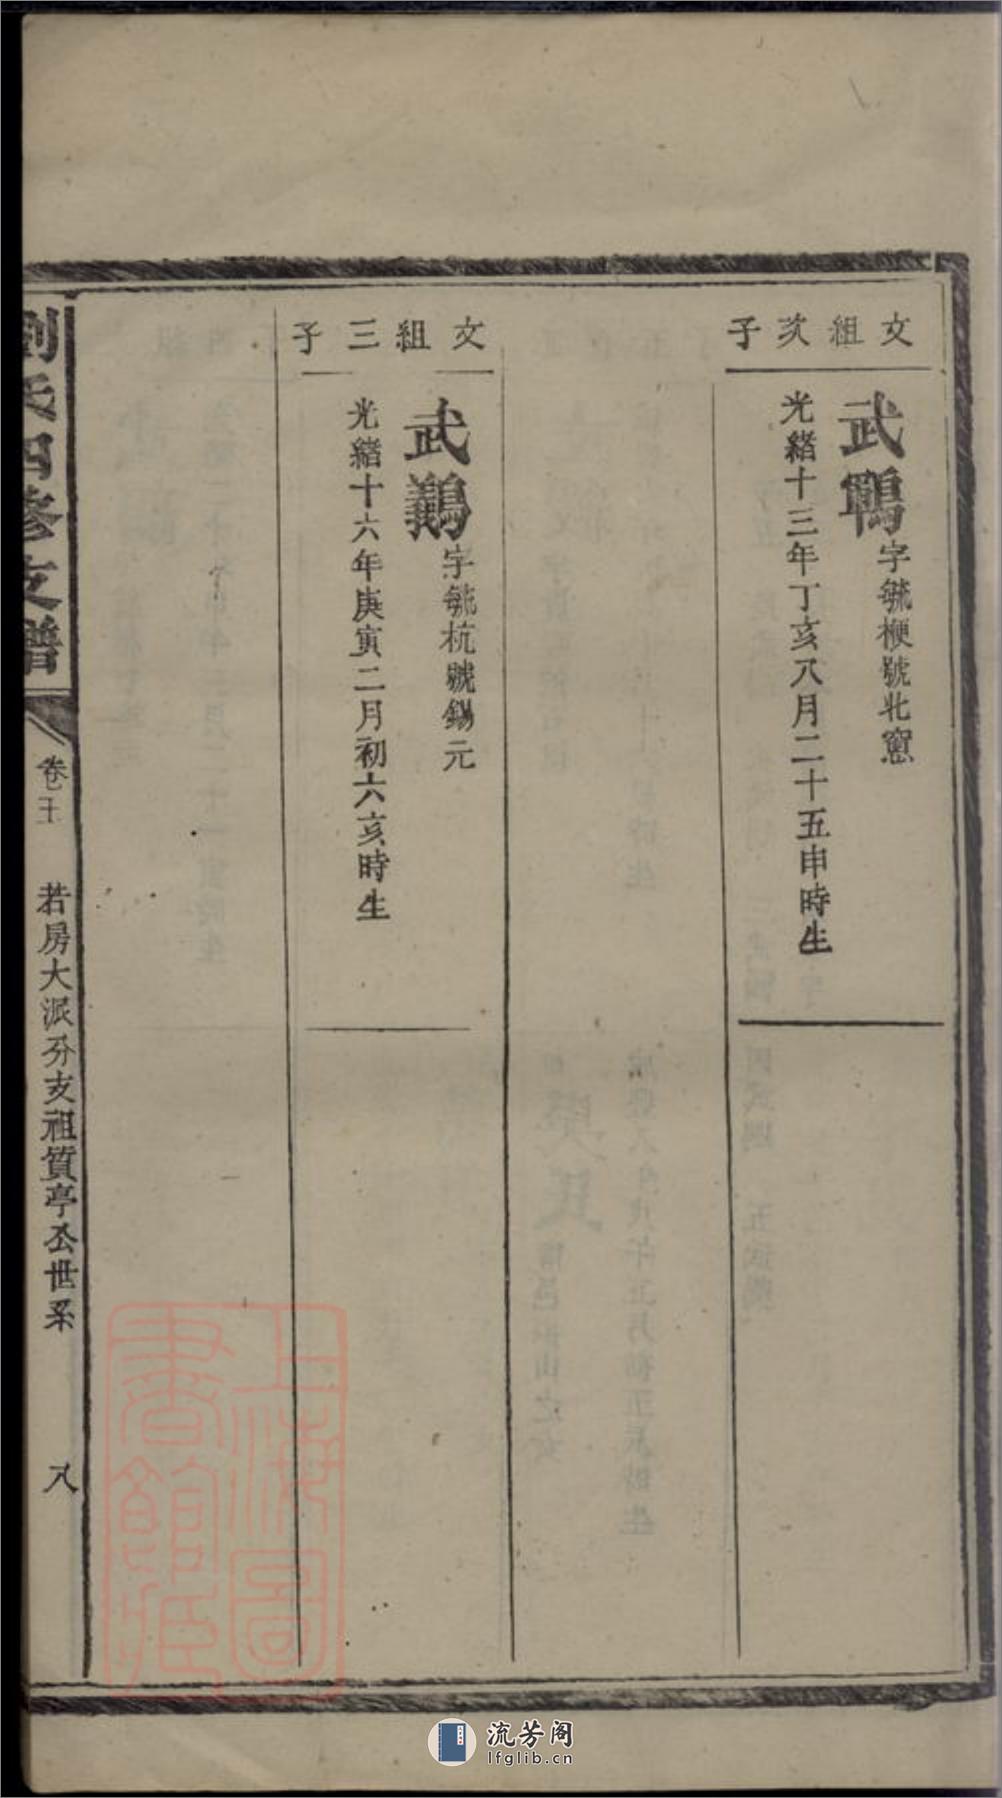 文組次子
武鶤
字毓梗號北窻
光緒十三年丁亥八月二十五申時生
文組三子
武鸏
字毓杭號錫元
光緒十六年庚寅二月初六亥時生
劉氏四修支譜
卷十
若房大派分支祖質亭公世系
八
上海圖書館藏
流芳阁
lfglib.cn